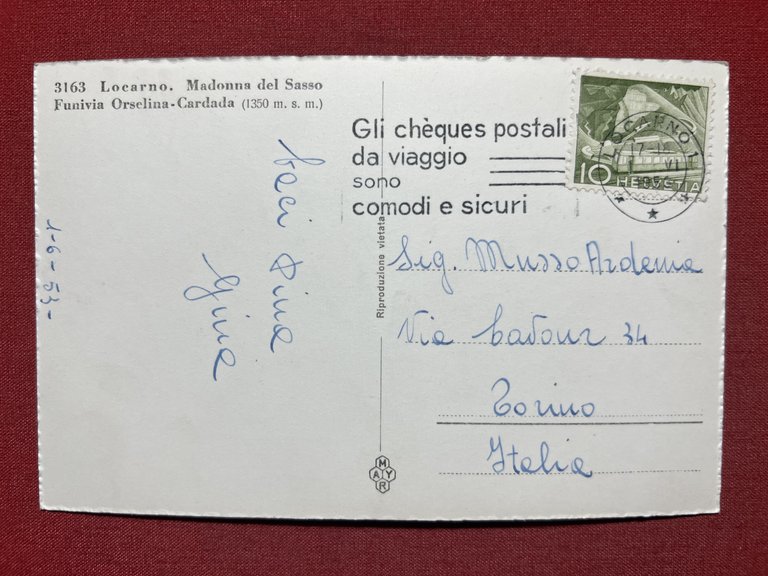 3163 Locarno. Madonna del Sasso
Funivia Orselina-Cardada (1350 m. s. m.)
Gli chèques postali
da viaggio
sono
comodi e sicuri
LOCARNO 1
VI
10 HELVETIA
Baci Dina
Gina
1-6-53-
Riproduzione vietata
Sig. Musso Ardenia
Via Cavour 34
Torino
Italia
MAYR